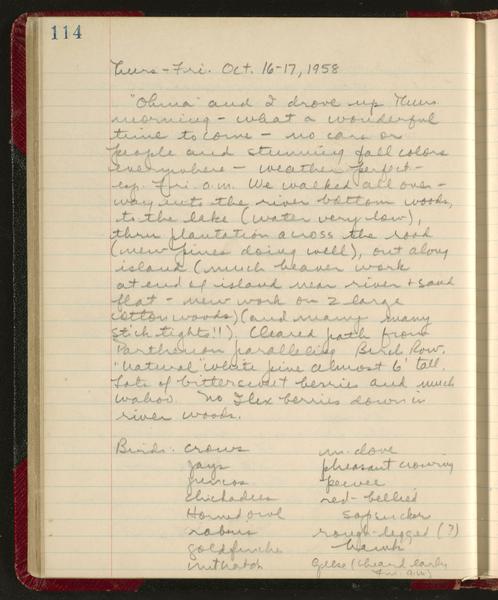 114
Thurs - Fri. Oct. 16-17, 1958
"Ohma" and I drove up Thurs
morning - what a wonderful
time to come - no cars or
people and stunning fall colors
everywhere - weather perfect -
esp. Fri. a.m. We walked all over -
way into the river bottom woods,
to the lake (water very low),
thru plantation across the road
(new pines doing well), out along
island (much beaver work
at end of island near river & sand
flat - new work on 2 large
cottonwoods) (and many many
stick tights!!). Cleared path from
Parthenon paralleling Birch Row.
"natural" white pine almost 6' tall.
Lots of bittersweet berries and much
wahoo. No Ilex berries down in
river woods.
Birds: crows m. dove
jays pheasant crowing
juncos peewee
chickadees red-bellied
Horned owl sapsucker
robins rough-legged (?)
goldfinche hawk
nuthatch Geese (heard early
Fri. a.m.)